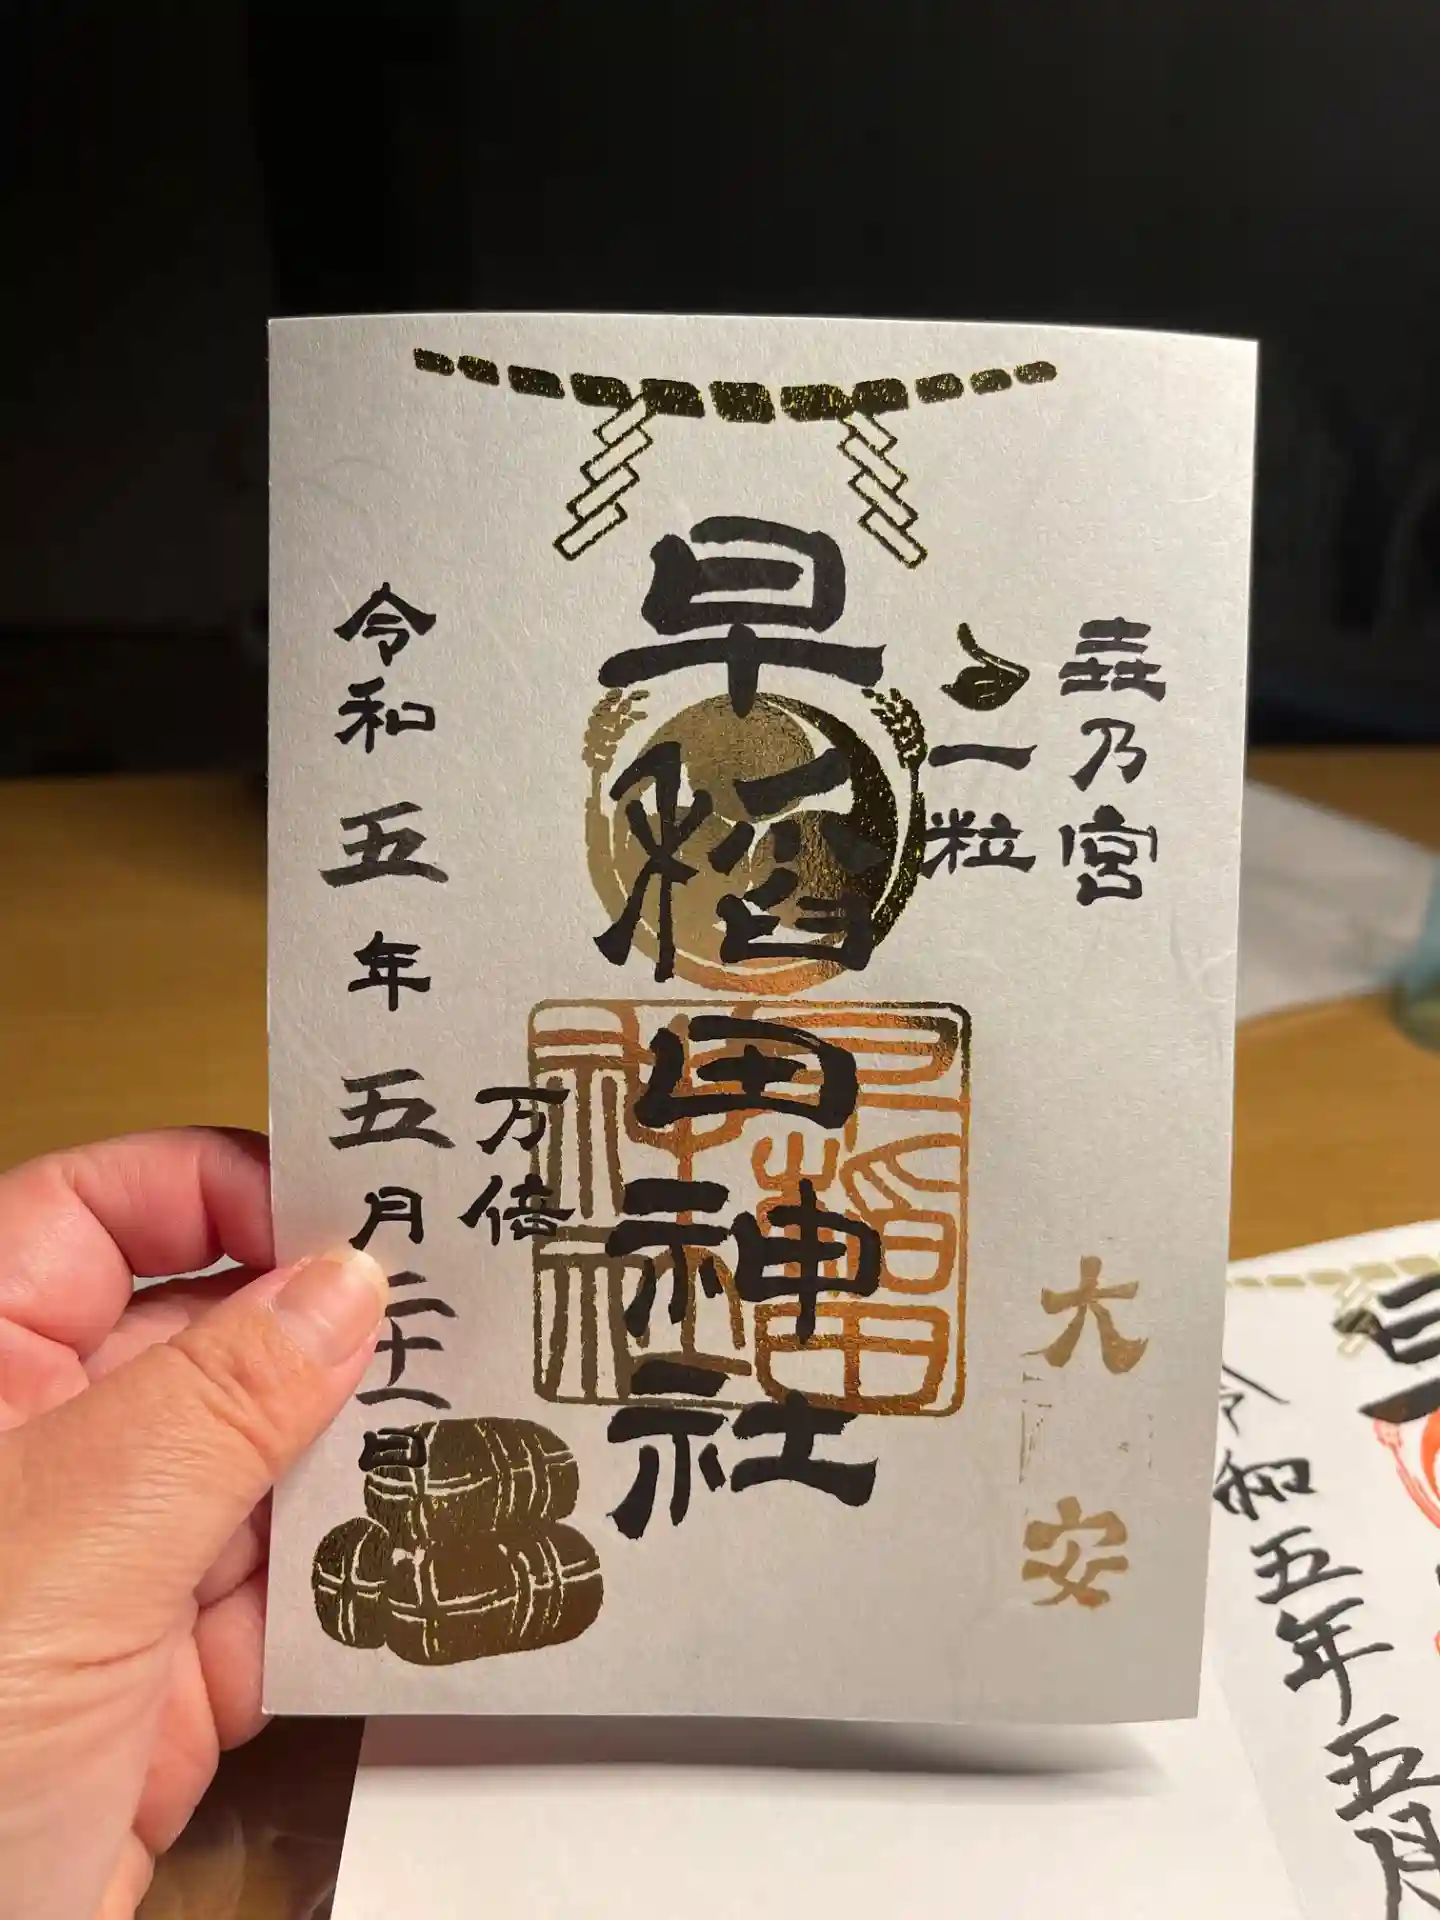 乃宮
一粒
大安
早稲田神社
万倍
令和五年五月二十一日
早
令和五年五月